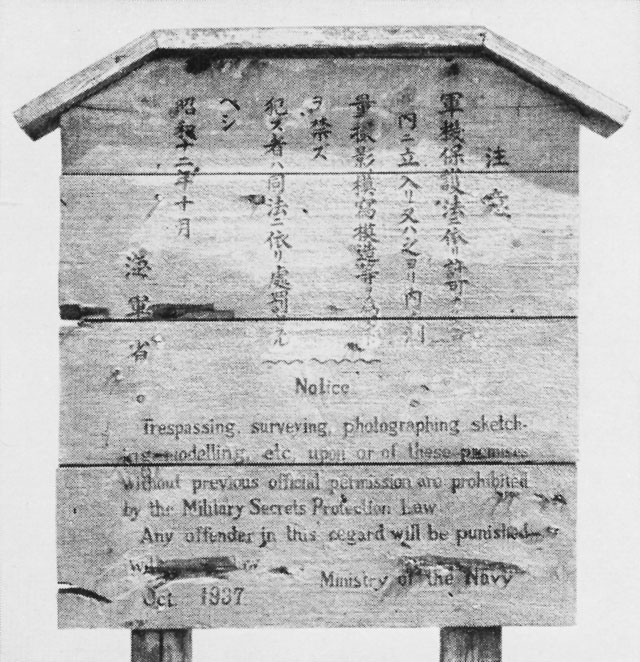 注意
軍機保護法ニ依リ許可ナ
内ニ立入リ又ハ之ヨリ内 測
量撮影模寫模造等
ヲ禁ズ
犯ス者ハ同法ニ依リ處罰
ヘシ
昭和十二年十月
海軍省
Notice
Trespassing, surveying, photographing sketch-
ing modelling, etc, upon or of these premises
without previous official permission are prohibited
by the Military Secrets Protection Law
Any offender in this regard will be punished
Ministry of the Navy
Oct. 1937